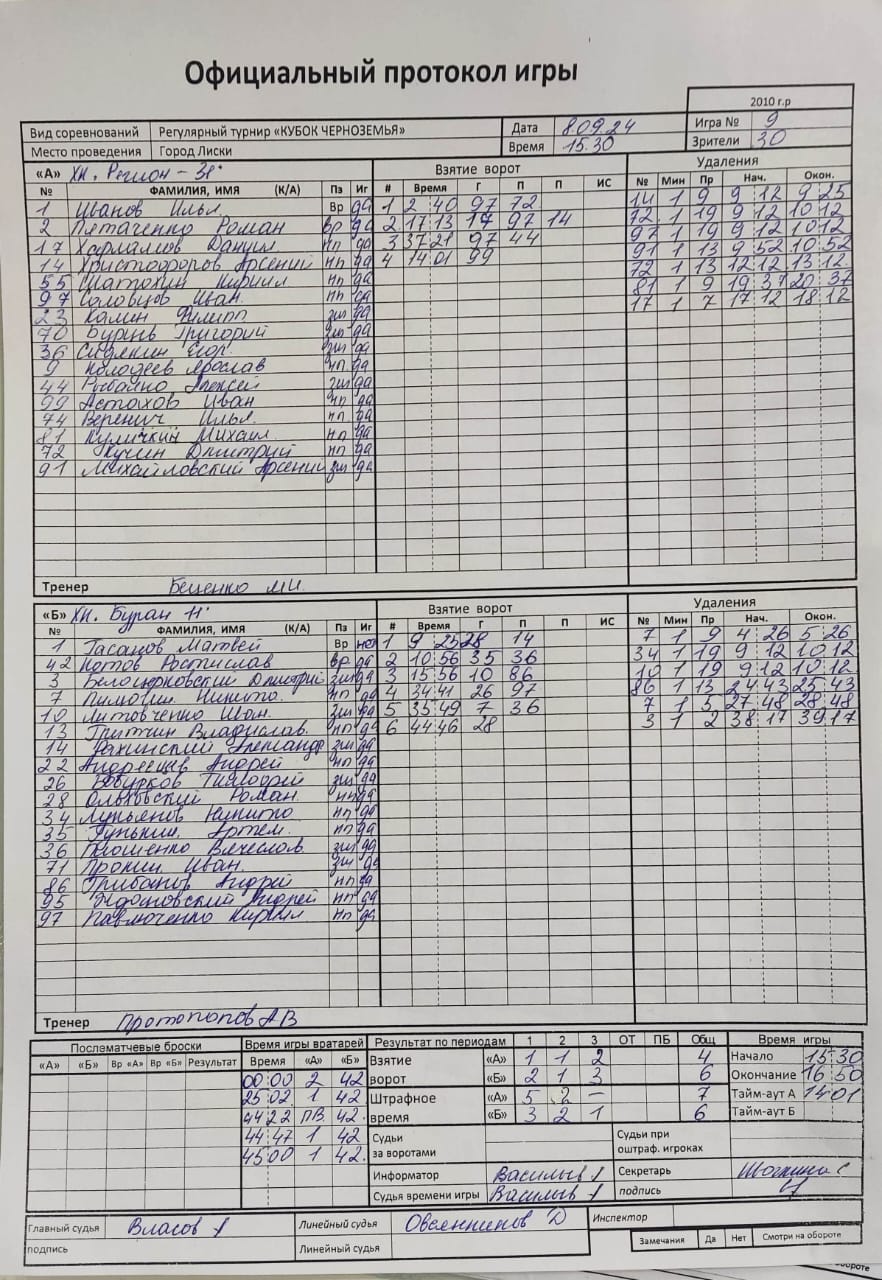 Официальный протокол игры
2010 г.р
Вид соревнований Регулярный турнир «КУБОК ЧЕРНОЗЕМЬЯ» Дата 8.09.24 Игра № 9
Место проведения Город Лиски Время 15.30 Зрители 30
«А» ХК. Регион - 31 Взятие ворот Удаления
№ ФАМИЛИЯ, ИМЯ (К/А) Пз Иг # Время Г П П ИС № Мин Пр Нач. Окон.
1 Иванов Илья Вр да 1 2 40 97 72 14 1 9 9 12 9 25
2 Пятаченко Роман Вр да 2 17 13 17 97 14 72 1 19 9 12 10 12
17 Харламов Данил нп да 3 37 21 97 44 97 1 19 9 12 10 12
14 Христофоров Арсений нп да 4 14 01 99 91 1 13 9 52 10 52
55 Шатохин Кирилл нп да 72 1 13 12 12 13 12
97 Соловцов Иван нп да 81 1 9 19 37 20 37
23 Калин Филипп зщ да 17 1 7 17 12 18 12
70 Григорий зщ да
36 Сидякин Егор. зщ да
9 Колодеев Ярослав нп да
44 Рыбалко Алексей зщ да
99 Астахов Иван нп да
74 Веренич Илья нп да
81 Куличкин Михаил нп да
72 Кучин Дмитрий нп да
91 Михайловский Арсений зщ да
Тренер Беценко МИ.
«Б» ХК. Буран 11 Взятие ворот Удаления
№ ФАМИЛИЯ, ИМЯ (К/А) Пз Иг # Время Г П П ИС № Мин Пр Нач. Окон.
1 Гасанов Матвей Вр нет 1 9 25 28 14 7 1 9 4 26 5 26
42 Котов Ростислав Вр да 2 10 56 35 36 34 1 19 9 12 10 12
3 Дмитрий зщ да 3 15 56 10 86 10 1 19 9 12 10 12
7 Никита нп да 4 34 41 26 97 86 1 13 24 43 25 43
10 Литовченко Иван. зщ да 5 35 49 7 36 7 1 5 27 48 28 48
13 Притчин Владислав. нп да 6 44 46 28 3 1 2 38 17 39 17
14 Рахинский Александр зщ да
22 Андреещев Андрей нп да
26 Тимофей зщ да
28 Ольховский Роман нп да
34 Лукьянов Никита нп да
35 Гунькин Артем. нп да
36 Вячеслав зщ да
71 Пронин Иван. зщ да
86 Грибанов Андрей нп да
95 Андрей нп да
97 Павлюченко Кирилл нп да
Тренер Протопопов АВ
Послематчевые броски Время игры вратарей Результат по периодам 1 2 3 ОТ ПБ Общ Время игры
«А» «Б» Вр «А» Вр «Б» Результат Время «А» «Б» Взятие ворот «А» 1 1 2 4 Начало 15 30
00 00 2 42 «Б» 2 1 3 6 Окончание 16 50
25 02 1 42 Штрафное время «А» 5 2 - 7 Тайм-аут А 14 01
44 22 ПВ. 42. «Б» 3 2 1 6 Тайм-аут Б
44 47 1 42 Судьи за воротами Судьи при оштраф. игроках
45 00 1 42.
Информатор Васильев Секретарь
Судья времени игры Васильев подпись
Главный судья Власов Линейный судья Овсянников Д Инспектор
подпись Линейный судья Замечания Да Нет Смотри на обороте
обороте